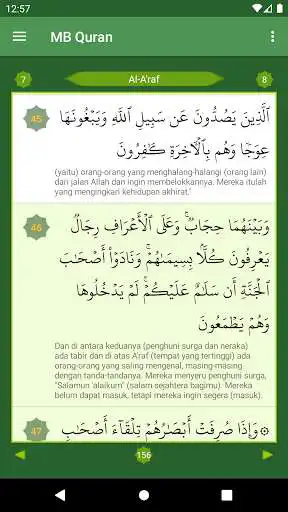 12:57
MB Quran
7
Al-A'raf
8
45
ٱلَّذِينَ يَصُدُّونَ عَن سَبِيلِ ٱللَّهِ وَيَبْغُونَهَا
عِوَجًا وَهُم بِٱلْأَخِرَةِ كَٰفِرُونَ
(yaitu) orang-orang yang menghalang-halangi (orang lain)
dari jalan Allah dan ingin membelokkannya. Mereka itulah
yang mengingkari kehidupan akhirat."
46
وَبَيْنَهُمَا حِجَابٌ ۚ وَعَلَى ٱلْأَعْرَافِ رِجَالٌ
يَعْرِفُونَ كُلًّۢا بِسِيمَىٰهُمْ ۚ وَنَادَوْا۟ أَصْحَٰبَ
ٱلْجَنَّةِ أَن سَلَٰمٌ عَلَيْكُمْ ۚ لَمْ يَدْخُلُوهَا
وَهُمْ يَطْمَعُونَ
Dan di antara keduanya (penghuni surga dan neraka)
ada tabir dan di atas A'raf (tempat yang tertinggi) ada
orang-orang yang saling mengenal, masing-masing
dengan tanda-tandanya. Mereka menyeru penghuni surga,
"Salamun 'alaikum" (salam sejahtera bagimu). Mereka
belum dapat masuk, tetapi mereka ingin segera (masuk).
47
۞ وَإِذَا صُرِفَتْ أَبْصَٰرُهُمْ تِلْقَآءَ أَصْحَٰبِ
156